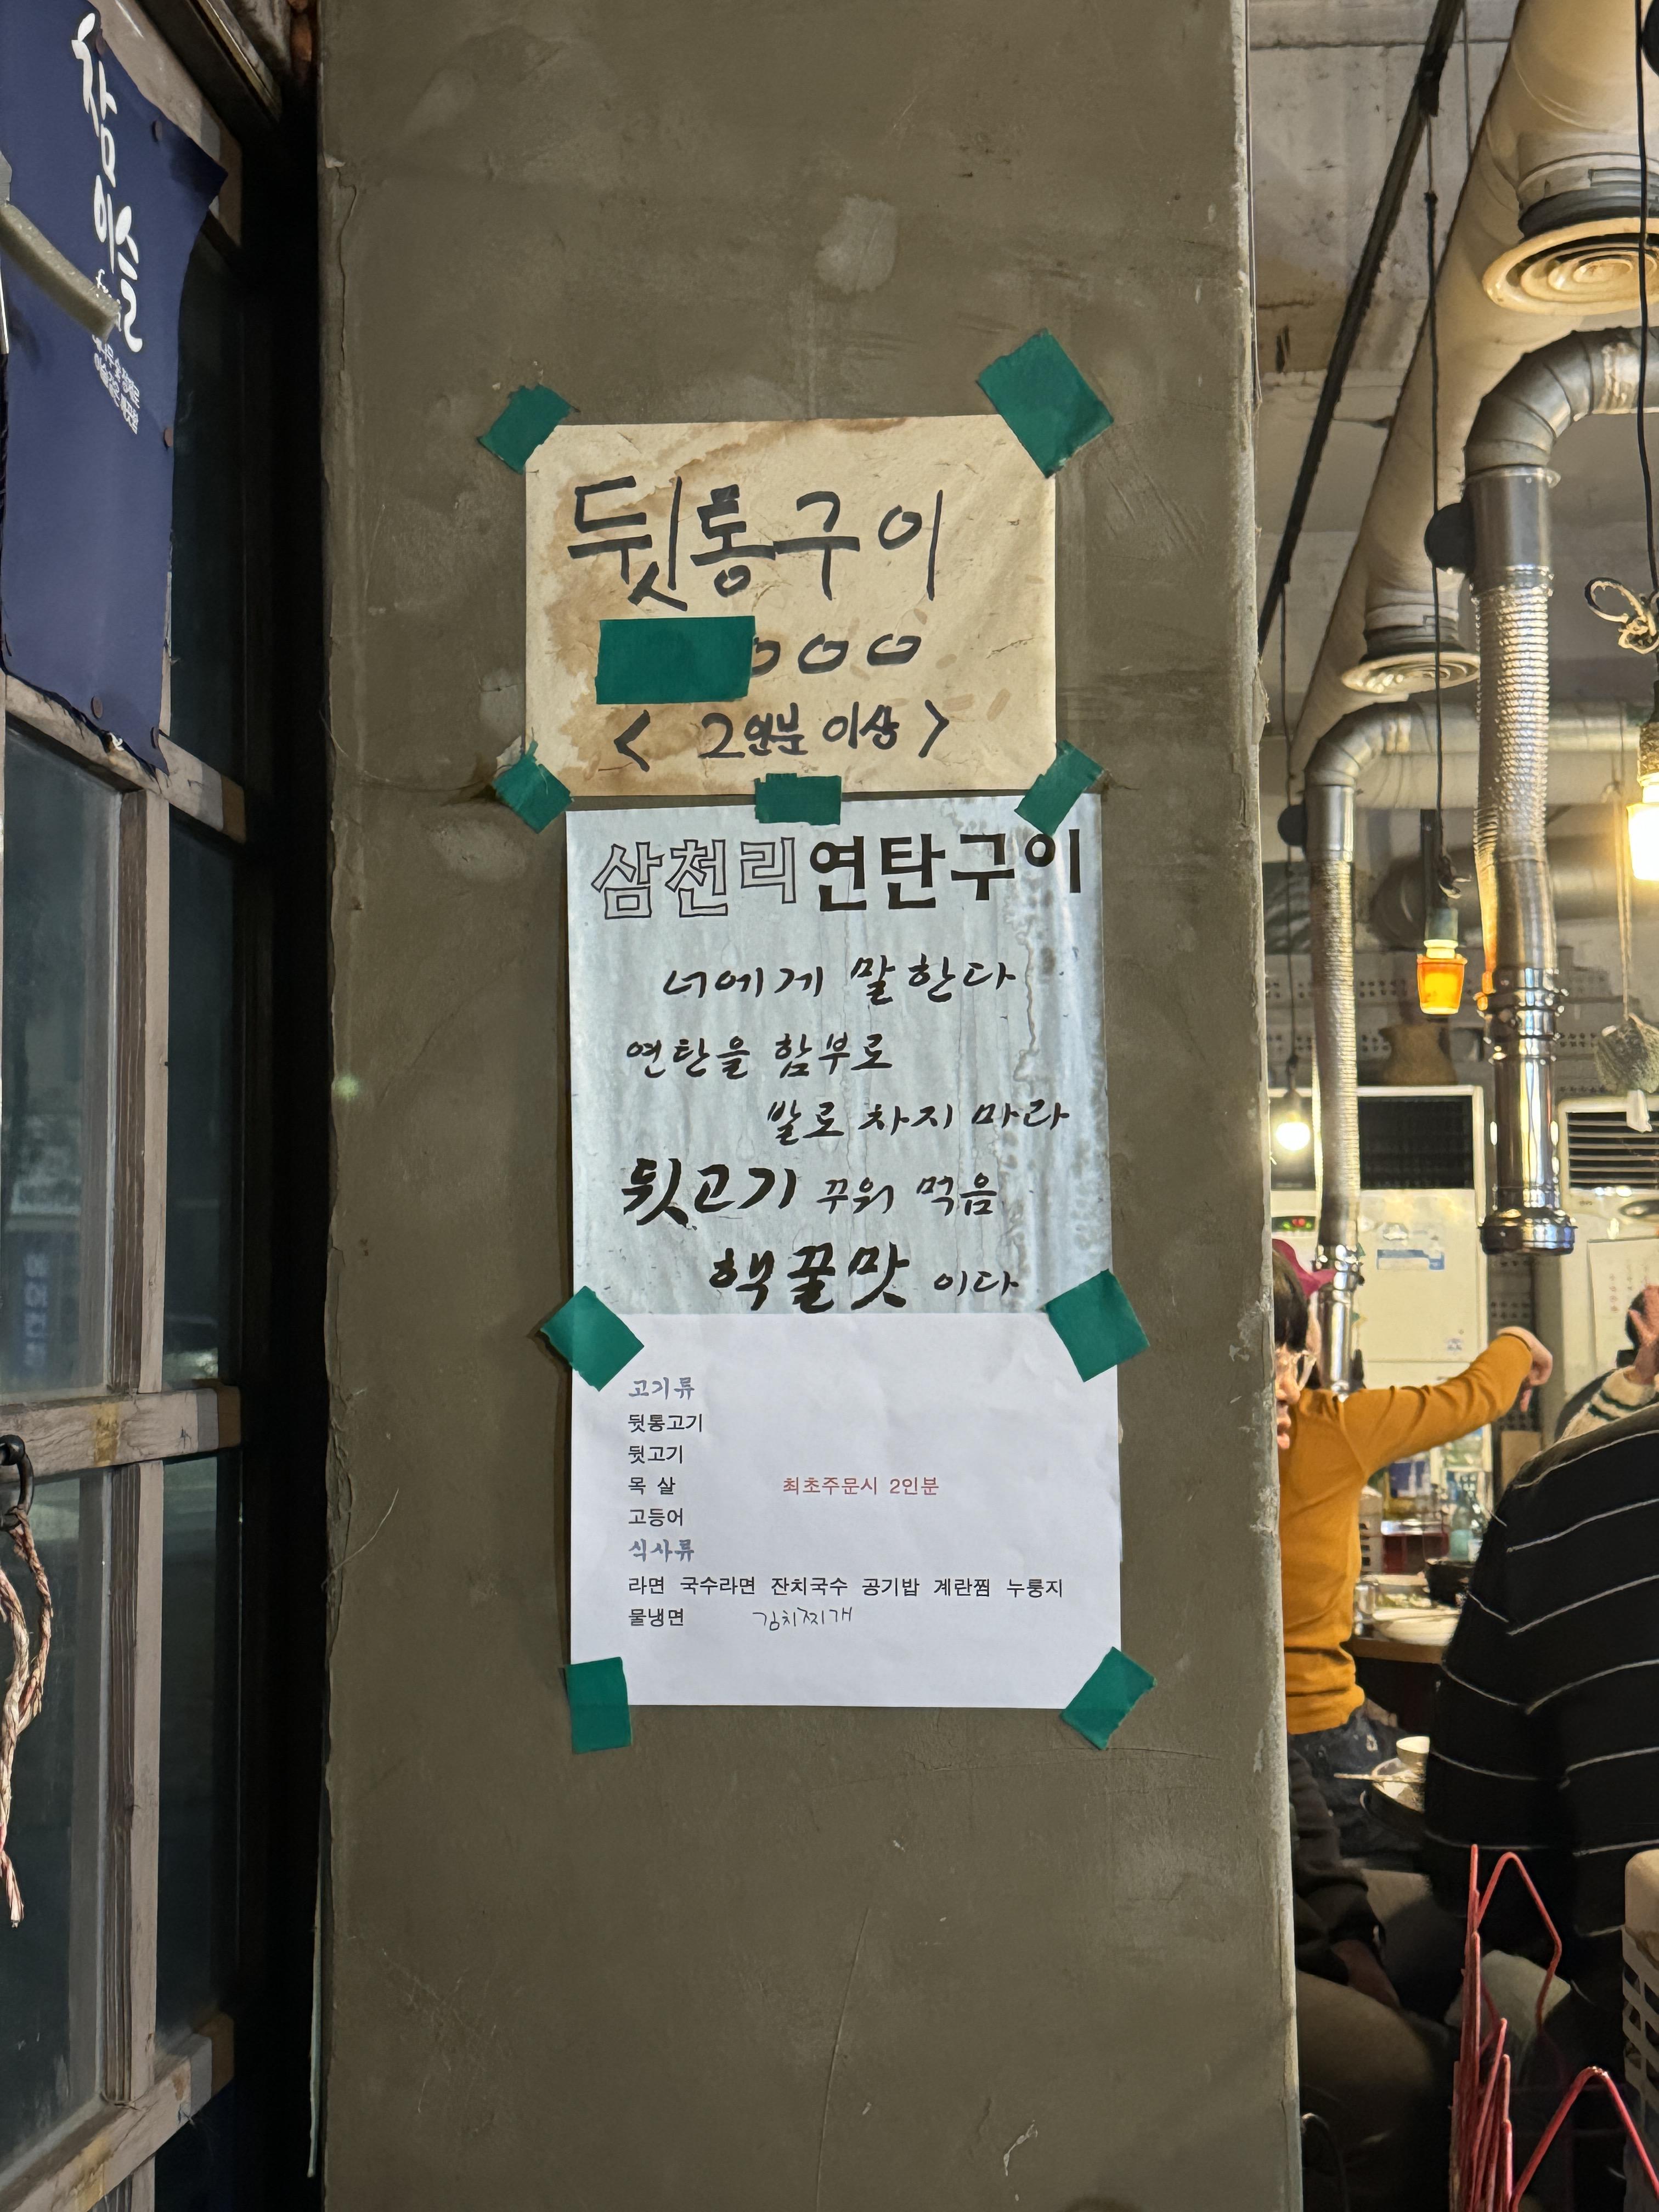 참이슬
뒷통구이
000
< 2인분 이상 >
삼천리연탄구이
너에게 말한다
연탄을 함부로
발로 차지 마라
뒷고기 꾸워 먹음
핵꿀맛 이다
고기류
뒷통고기
뒷고기
목 살 최초주문시 2인분
고등어
식사류
라면 국수라면 잔치국수 공기밥 계란찜 누룽지
물냉면 김치찌개